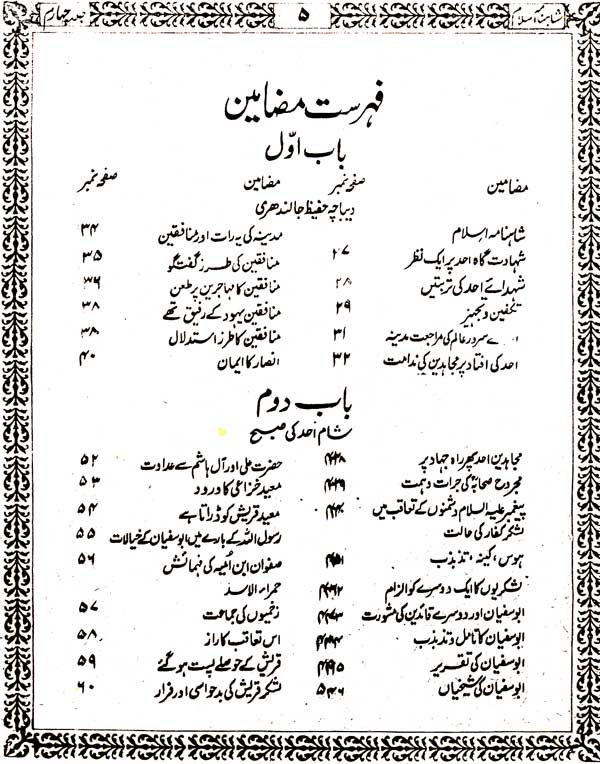 شاہنامہ اسلام
۵
جلد چہارم
فہرست مضامین
باب اوّل
مضامین صفحہ نمبر
مضامین صفحہ نمبر
دیباچہ حفیظ جالندھری
شاہنامہ اسلام
شہادت گاہ احد پر ایک نظر ۲۷
شہدائے احد کی تربتیں ۲۸
تکفین و تجہیز ۲۹
سرور عالم کی مراجعت مدینہ ۳۱
احد کی افتاد پر مجاہدین کی ندامت ۳۲
مدینہ کی یہ رات اور منافقین ۳۴
منافقین کی طرز گفتگو ۳۵
منافقین کا مہاجرین پر طعن ۳۶
منافقین یہود کے رفیق تھے ۳۸
منافقین کا طرز استدلال ۳۸
انصار کا ایمان ۴۰
باب دوم
شام احد کی صبح
مجاہدین احد پھر راہ جہاد پر
مجروح صحابہؓ کی جرات و ہمت
پیغمبر علیہ السلام دشمنوں کے تعاقب میں
لشکر کفار کی حالت
ہوس، کینہ، تذبذب
لشکریوں کا ایک دوسرے کو الزام
ابوسفیان اور دوسرے قائدین کی مشورت
ابوسفیان کا تامل و تذبذب
ابوسفیان کی تقریر
ابوسفیان کی شیخیاں
حضرت علی اور آل ہاشم سے عداوت ۵۲
معبد خزاعی کا ورود ۵۳
معبد قریش کو ڈراتا ہے ۵۴
رسول اللہ کے بارے میں ابوسفیان کے خیالات ۵۵
صفوان ابن اُمیہ کی فہمائش ۵۶
حمراء الاسد
زخمیوں کی جماعت ۵۷
اس تعاقب کا راز ۵۸
قریش کے حوصلے پست ہو گئے ۵۹
لشکر قریش کی بدحواسی اور فرار ۶۰